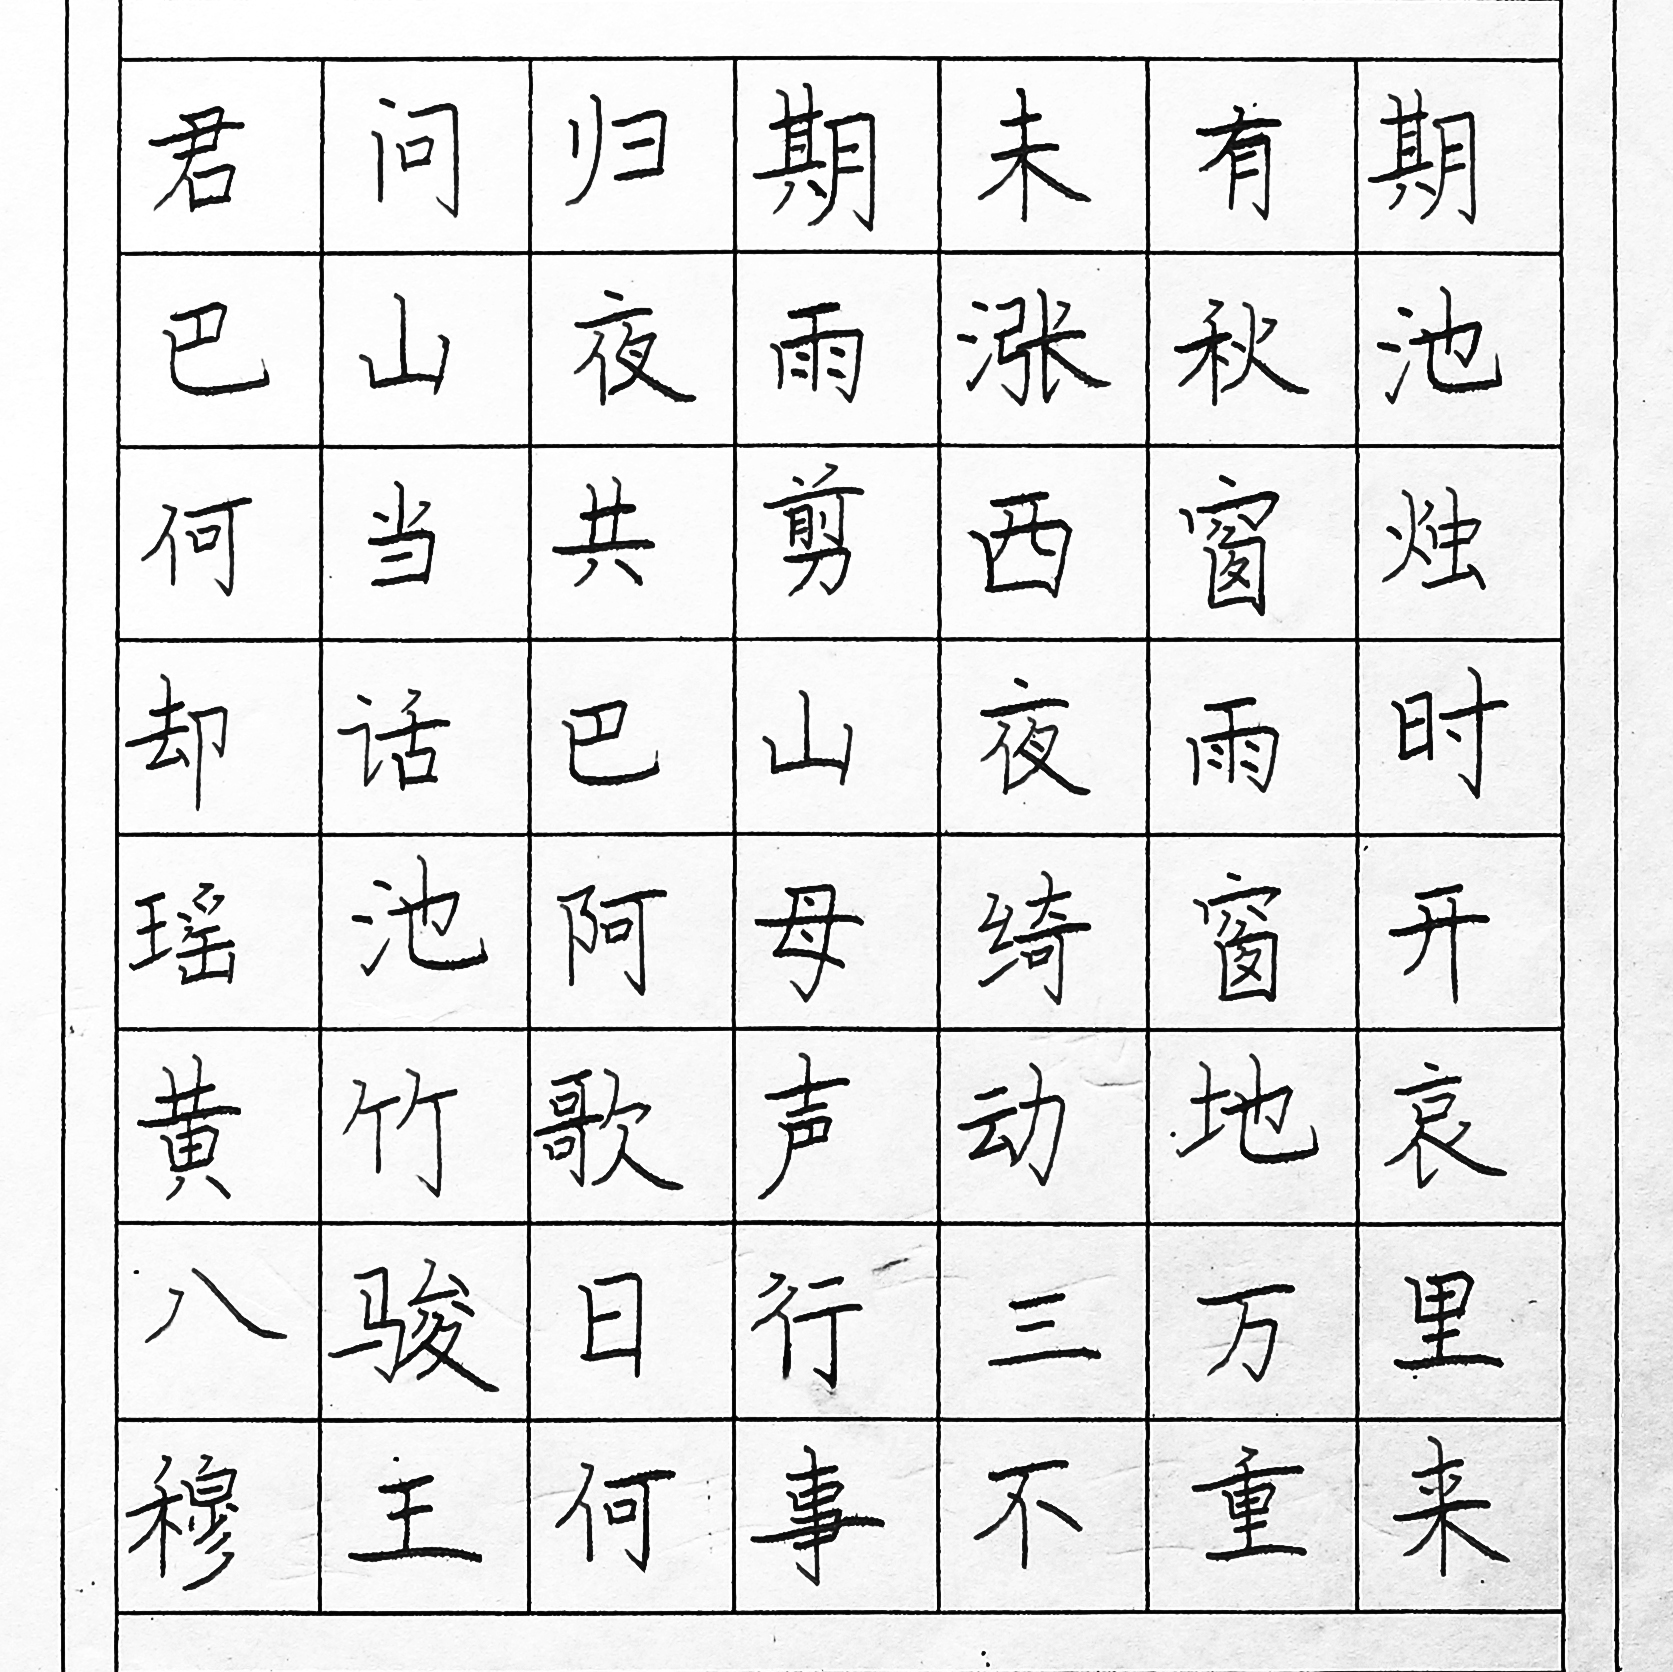 君问归期未有期
巴山夜雨涨秋池
何当共剪西窗烛
却话巴山夜雨时
瑶池阿母绮窗开
黄竹歌声动地哀
八骏日行三万里
穆王何事不重来